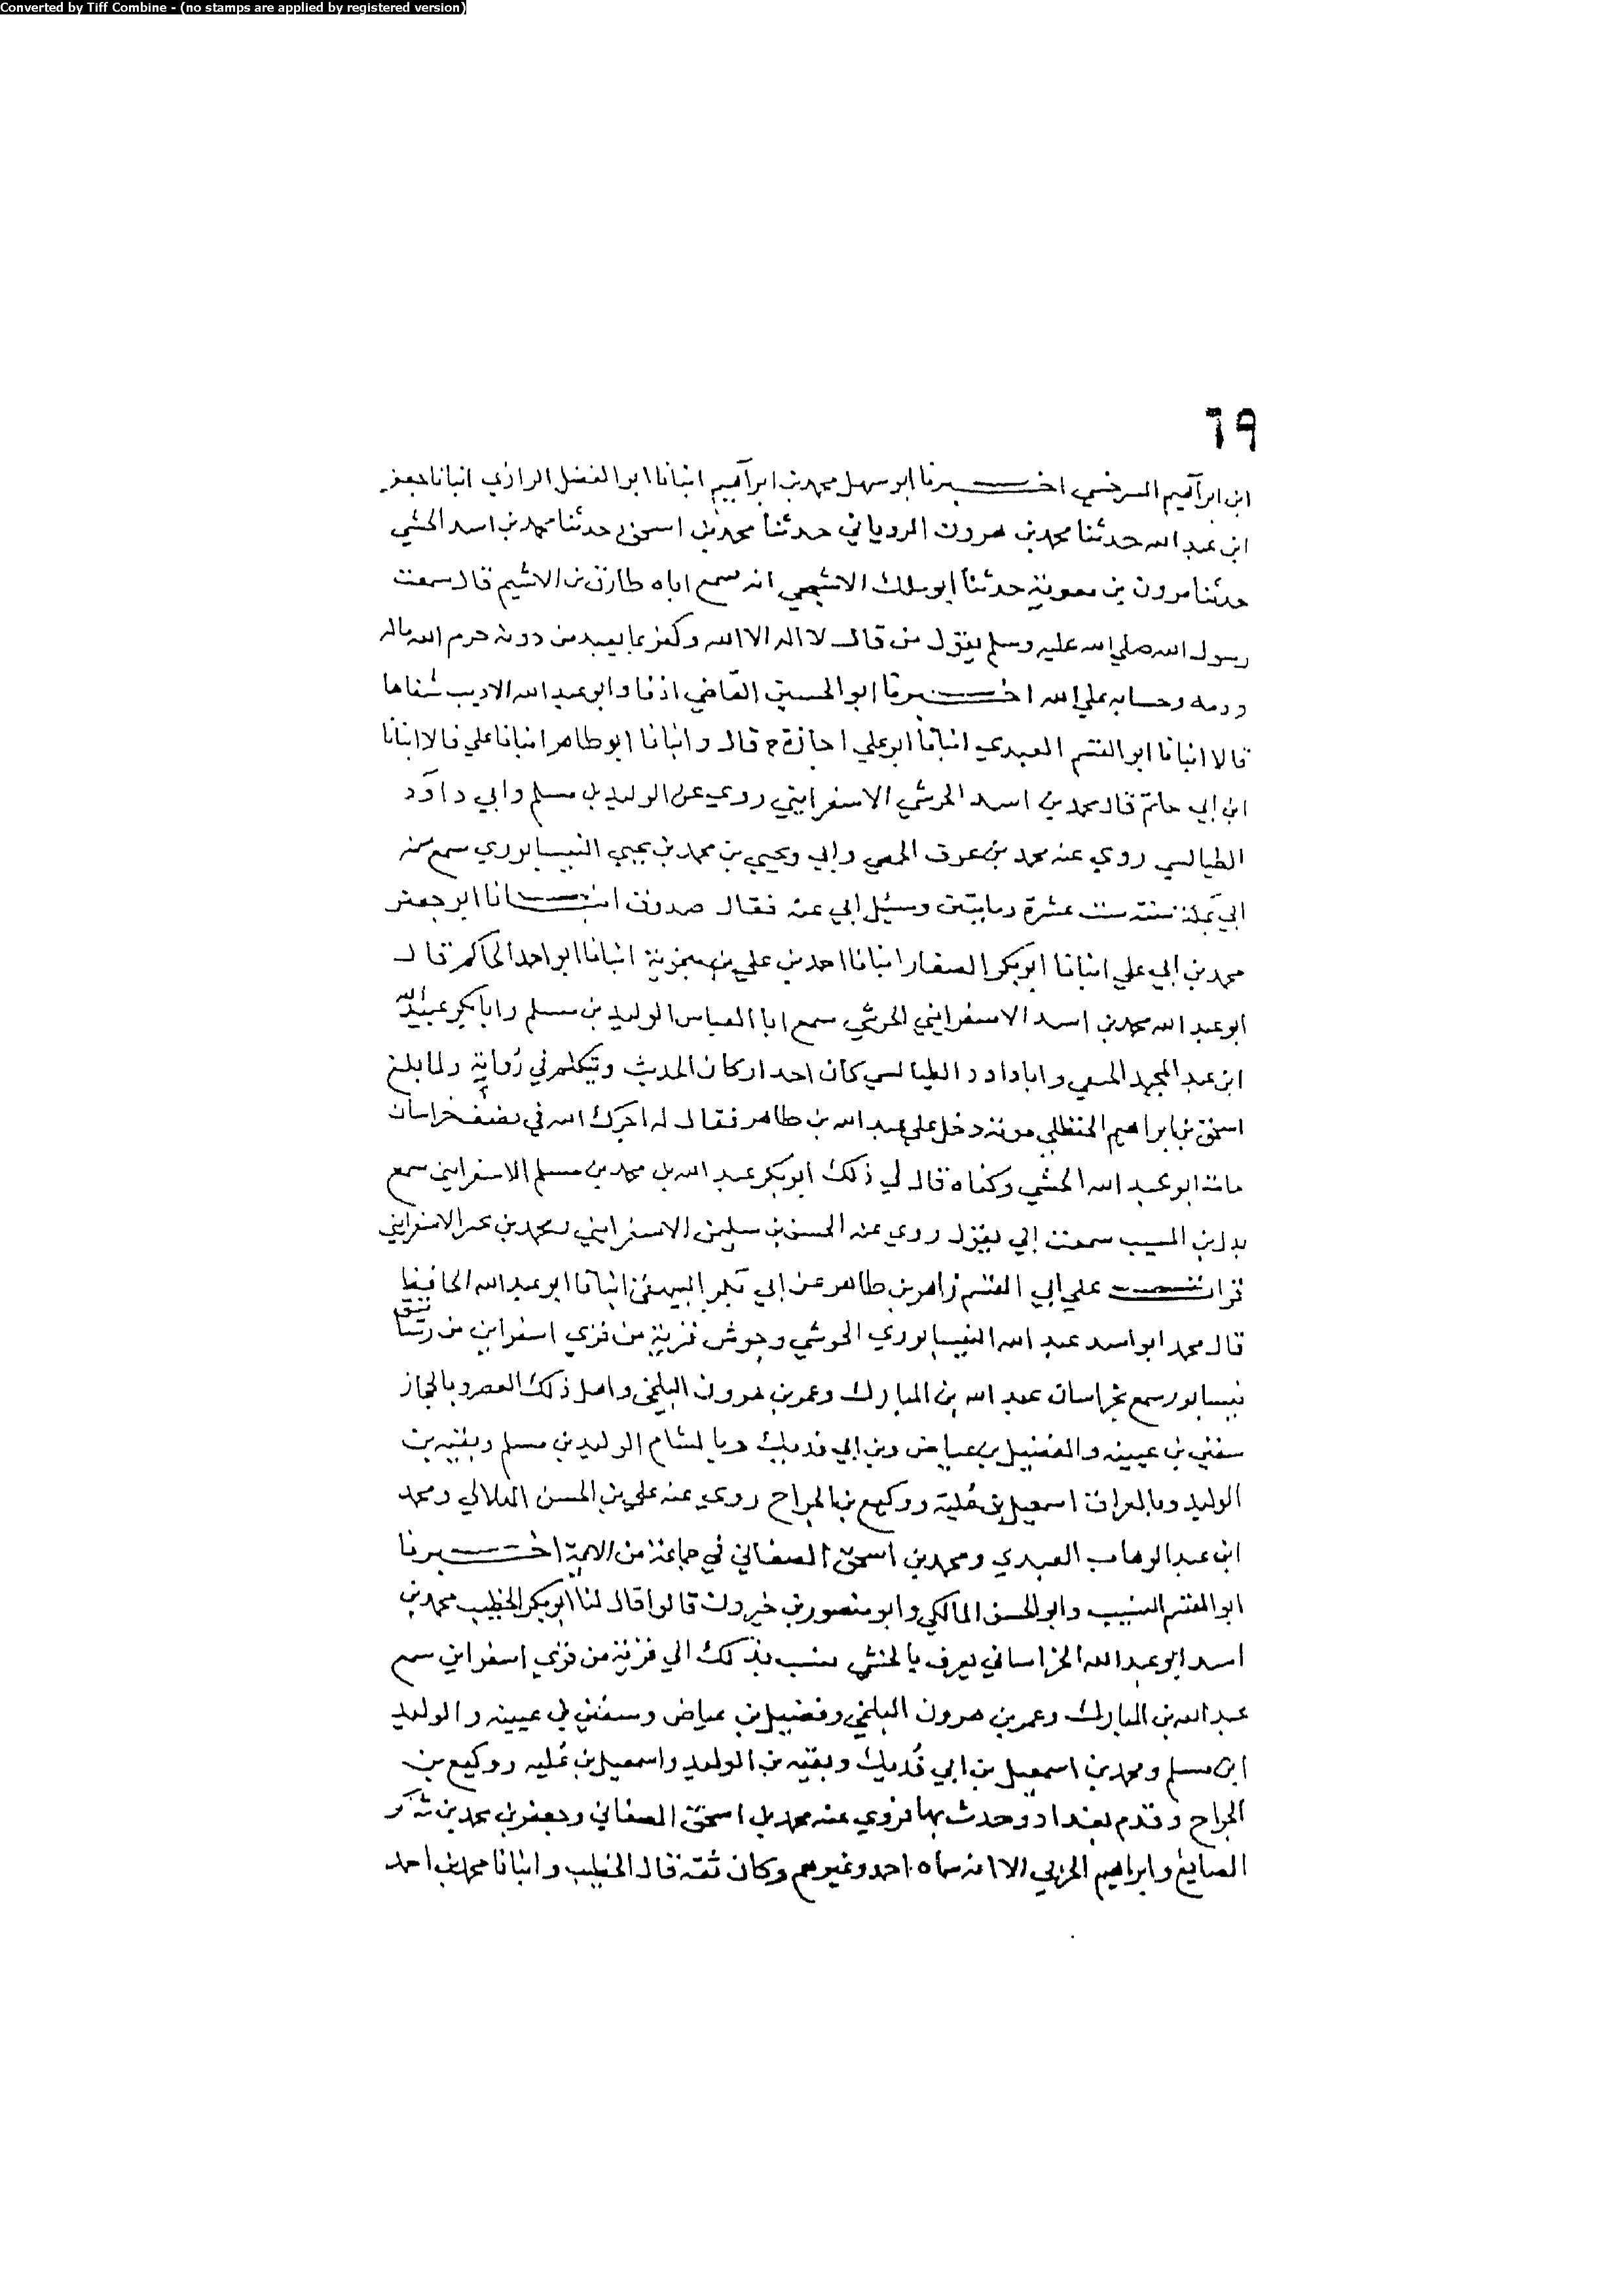 Converted by Tiff Combine - (no stamps are applied by registered version)
٦٩
ابن ابراهيم السرخسي اخبرنا ابو سهل محمد بن ابراهيم انبانا ابو الفضل الرازي انبانا جعفر
ابن عبد الله حدثنا محمد بن هرون الروياني حدثنا محمد بن اسحق حدثنا محمد بن اسد الخشي
حدثنا مرون بن معوية حدثنا ابو ملك الاشجعي انه سمع اباه طارق بن الاشيم قال سمعت
رسول الله صلي الله عليه وسلم يقول من قال لا اله الا الله وكفر بما يعبد من دونه حرم الله ماله
ودمه وحسابه علي الله اخبرنا ابو الحسين القاضي اذنا وابو عبد الله الاديب شفاها
قالا انبانا ابو القسم العبدي انبانا ابو علي اجازة ح قال وانبانا ابو طاهر انبانا علي قالا انبانا
ابن ابي حاتم قال محمد بن اسد الحرشي الاسفرايني روي عن الوليد بن مسلم وابي داود
الطيالسي روي عنه محمد بن عوف الحمصي وابي ويحيي بن محمد بن يحيي النيسابوري سمع منه
ابي بمكة سنة ست عشرة ومايتين وسئل ابي عنه فقال صدوق انبانا ابو جعفر
محمد بن ابي علي انبانا ابو بكر الصفار انبانا احمد بن علي بن منجوية انبانا ابو احمد الحاكم قال
ابو عبد الله محمد بن اسد الاسفرايني الحرشي سمع ابا العباس الوليد بن مسلم وابا بكر عبيد الله
ابن عبد المجيد الحنفي وابا داود الطيالسي كان احد اركان الحديث ويتكلم في رواية ولما بلغ
اسحق بن ابراهيم الحنظلي موته دخل علي عبد الله بن طاهر فقال له اجرك الله في نصف خراسان
مات ابو عبد الله الخشي وكفاه قال لي ذلك ابو بكر عبد الله بن محمد بن مسلم الاسفرايني سمع
بدل بن المسيب سمعت ابي يقول روي عنه الحسن بن سليمن الاسفرايني ومحمد بن عمر الاسفرايني
قرات علي ابي القسم زاهر بن طاهر عن ابي بكر البيهقي انبانا ابو عبد الله الحافظ
قال محمد ابو اسد عبد الله النيسابوري الحوشي وجوش قرية من قري اسفراين من رستاق
نيسابور سمع بخراسان عبد الله بن المبارك وعمر بن هرون البلخي واهل ذلك العصر وبالحجاز
سفين بن عيينه والفضيل بن عياض وبن ابي فديك وبالشام الوليد بن مسلم وبقيه بن
الوليد وبالعراق اسمعيل بن علية ووكيع بن الجراح روي عنه علي بن الحسن الهلالي ومحمد
ابن عبد الوهاب العبدي ومحمد بن اسحق الصغاني في جماعة من الايمة اخبرنا
ابو القسم النسيب وابو الحسن المالكي وابو منصور بن خيرون قالوا قال لنا ابو بكر الخطيب محمد بن
اسد ابو عبد الله الخراساني يعرف بالخشي ينسب بذلك الي قرية من قري اسفراين سمع
عبد الله بن المبارك وعمر بن هرون البلخي وفضيل بن عياض وسفين بن عيينه والوليد
ابن مسلم ومحمد بن اسمعيل بن ابي فديك وبقيه بن الوليد واسمعيل بن عليه ووكيع بن
الجراح وقدم بغداد وحدث بها فروي عنه محمد بن اسحق الصغاني وجعفر بن محمد بن شاكر
الصايغ وابراهيم الحربي الا انه سماه احمد وغيرهم وكان ثقة قال الخطيب وانبانا محمد بن احمد